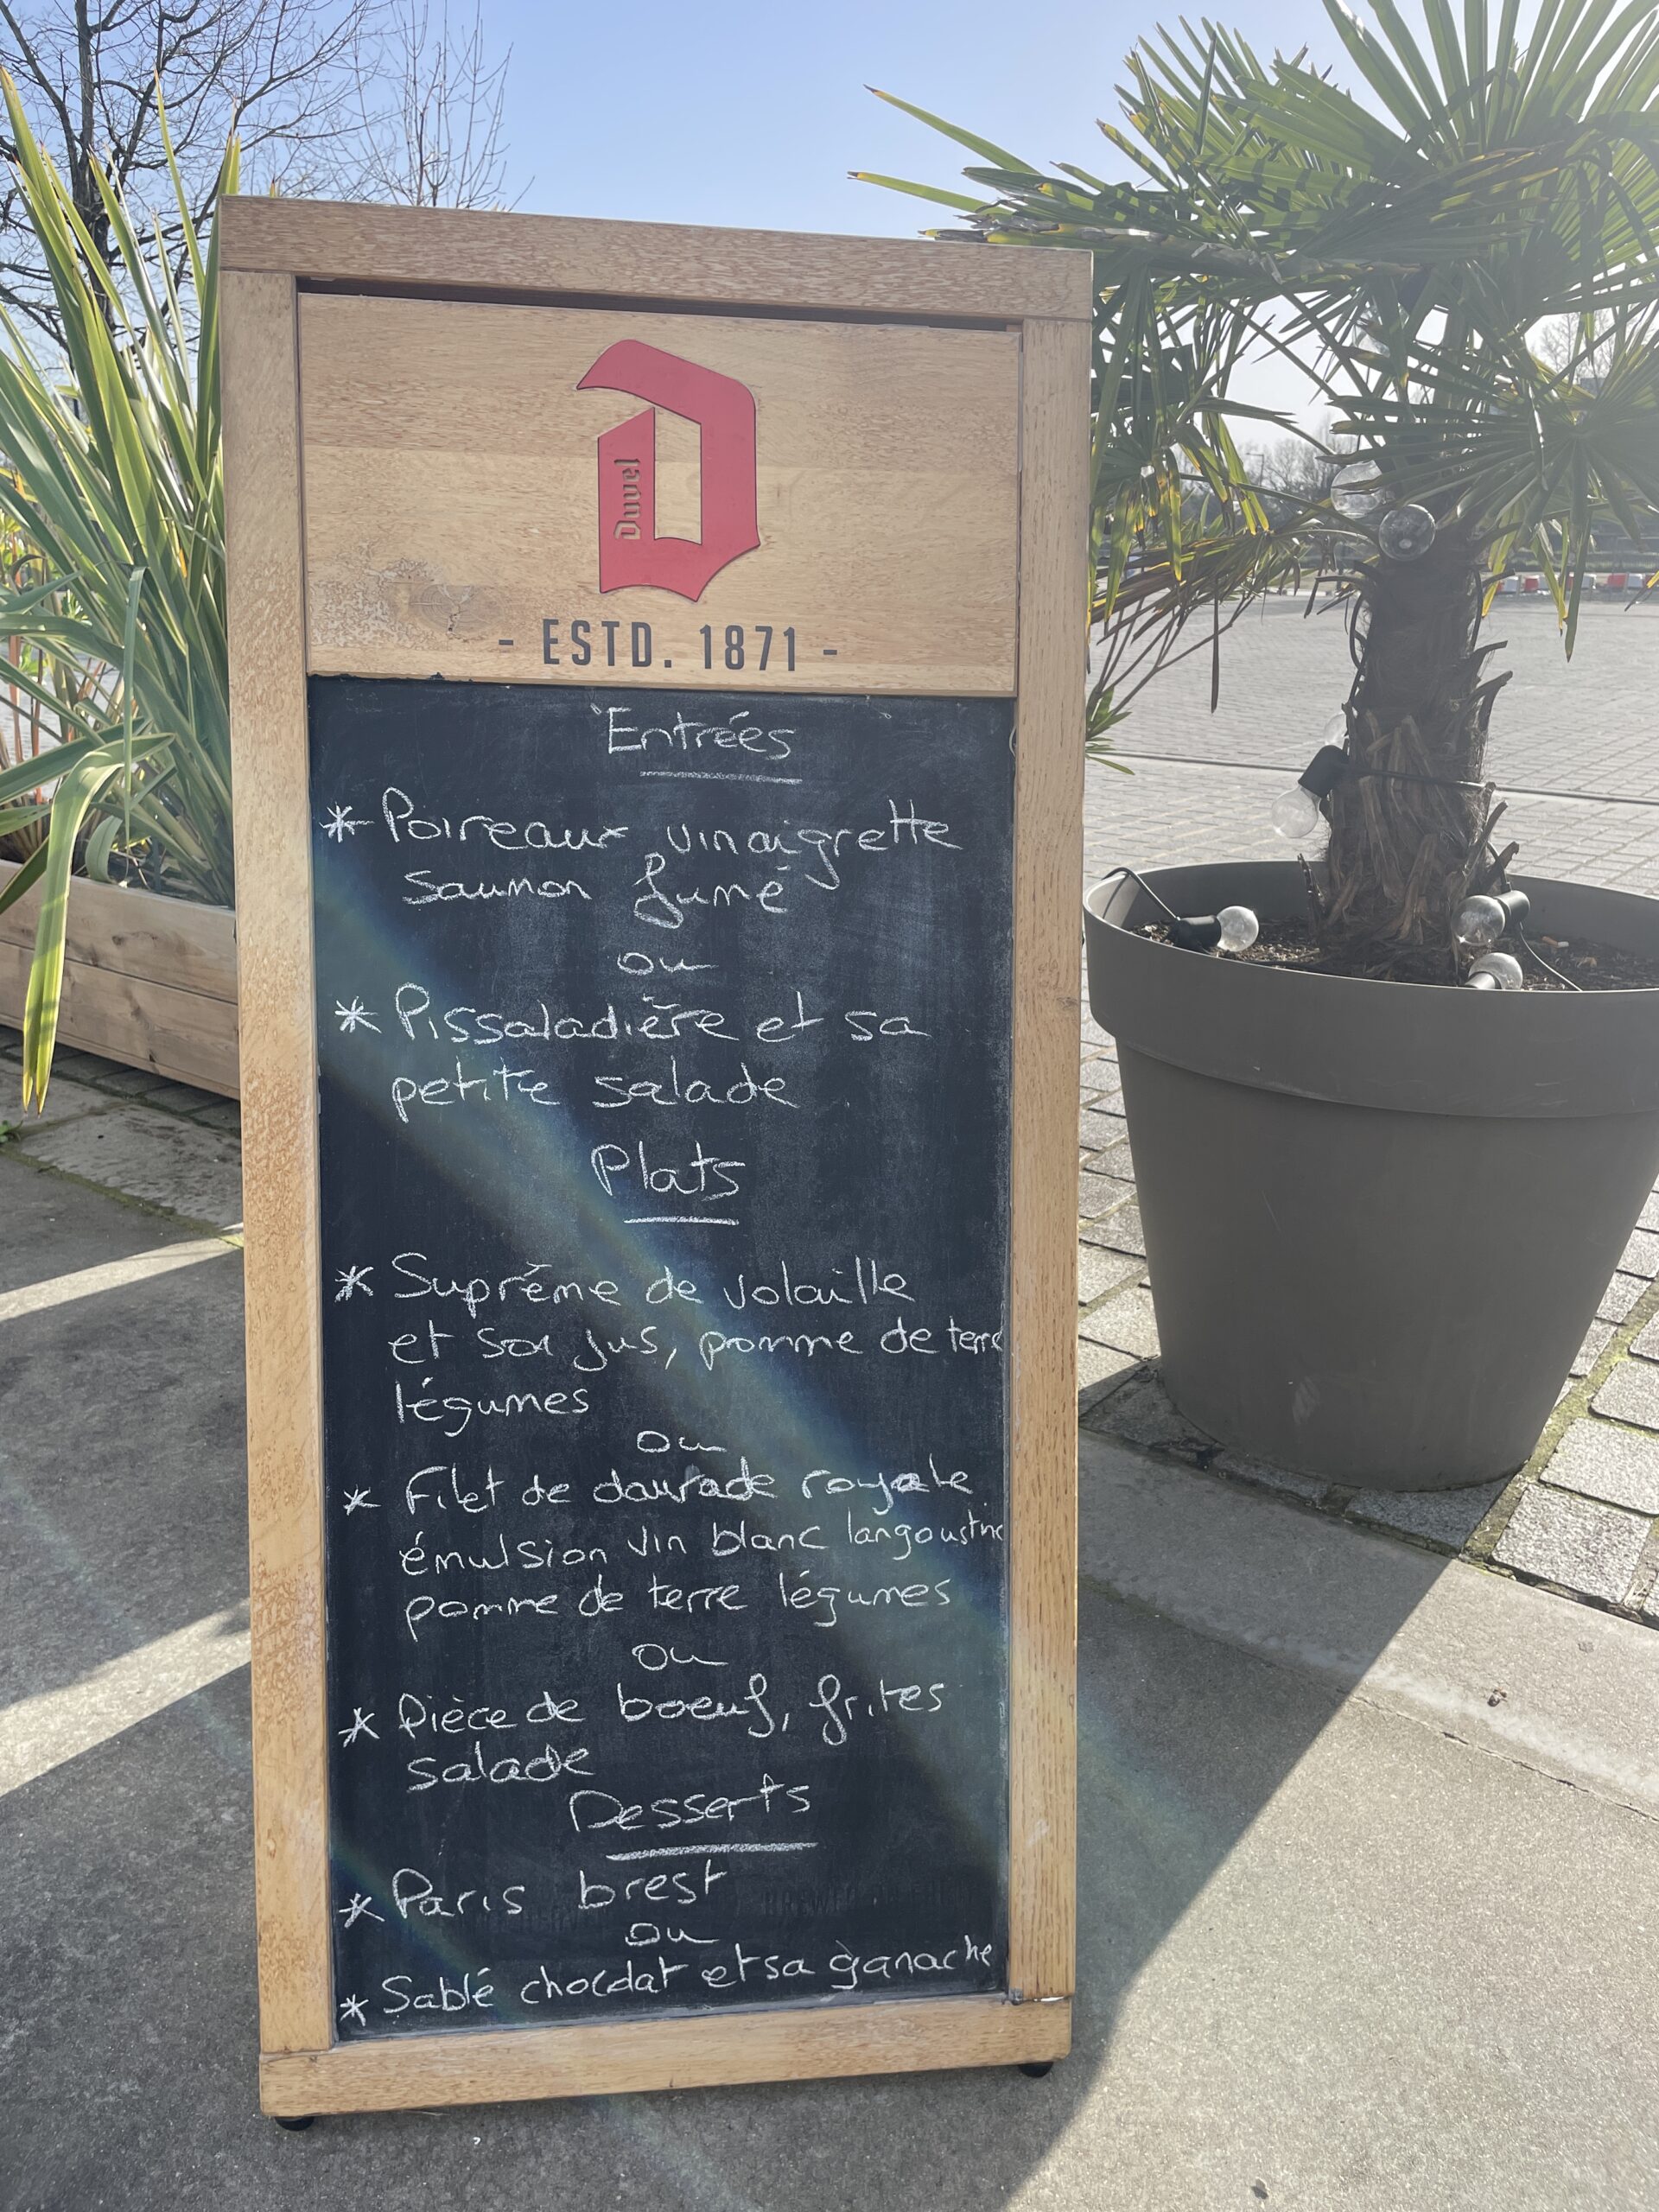 Duvel
- ESTD. 1871 -
Entrées
* Poireaux vinaigrette
saumon fumé
ou
* Pissaladière et sa
petite salade
Plats
* Suprême de volaille
et son jus, pomme de terre
légumes
ou
* Filet de daurade royale
émulsion vin blanc langoustine
pomme de terre légumes
ou
* Pièce de boeuf, frites
salade
Desserts
* Paris brest
ou
* Sablé chocolat et sa ganache